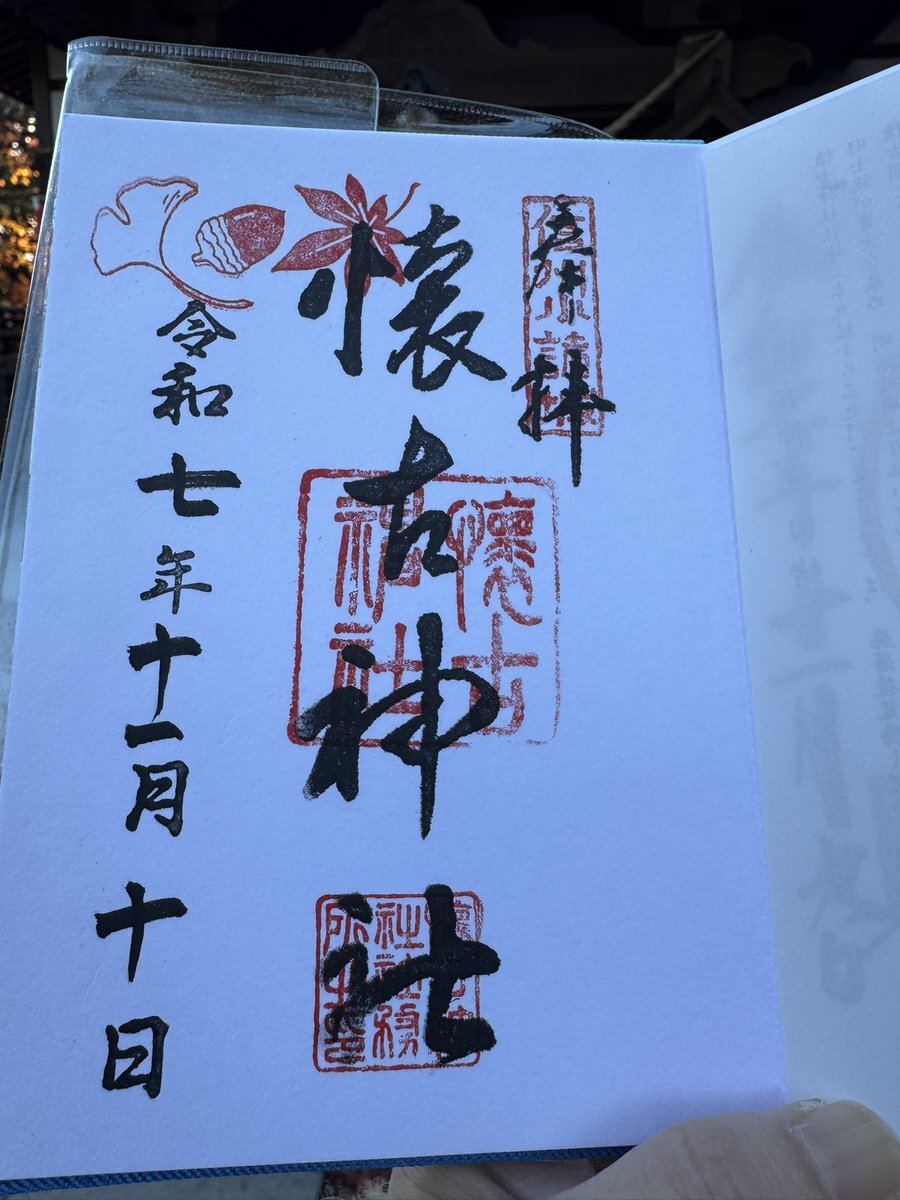 奉拝
信州小諸城
懐古神社
懐古神社
懐古神社社務所之印
令和七年十一月十日